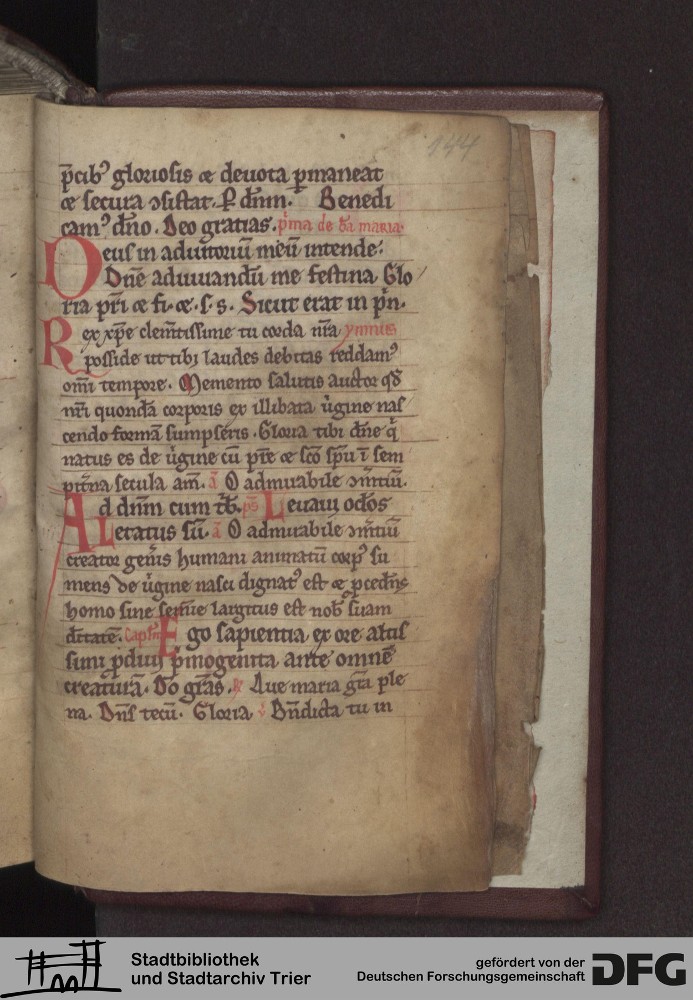 144
p̄cib⁹ gloriosis ⁊ deuota ꝑmaneat
⁊ secura ↄsistat. P̄ dn̄m. Benedi
cam⁹ dn̄o. Deo gratias. p̄ma de b̄a maria.
Deus in adiutoriū meū intende.
Dn̄e adiuuandū me festina. Glo
ria pr̄i ⁊ fi. ⁊. s. s. Sicut erat in p̄n.
Rex xp̄e clem̄tissime tu corda nr̄a ymnus
posside ut tibi laudes debitas reddam⁹
om̄i tempore. Memento salutis auctor qd̄
nr̄i quondā corporis ex illibata ūgine nas
cendo formā sumpseris. Gloria tibi dn̄e q̄
natus es de ūgine cū pr̄e ⁊ sc̄o sp̄u ī sem
pit̄na secula am̄. ā O admirabile ↄm̄tiū.
Ad dn̄m cum tb̄. ps̄ Leuaui oc̄los
Letatus sū. ā O admirabile ↄm̄tiū
creator gen̄is humani animatū corp⁹ su
mens de ūgine nasci dignat⁹ est ⁊ ꝓcedn̄s
homo sine semīe largitus est nob̄ suam
deitatē. Capl'm Ego sapientia ex ore altis
simi ꝓdiui p̄mogenita ante omnē
creaturā. Do gr̄as. ℟ Aue maria gr̄a ple
na. Dn̄s tecū. Gloria ℣ Bn̄dicta tu in
Stadtbibliothek
und Stadtarchiv Trier
gefördert von der
Deutschen Forschungsgemeinschaft
DFG